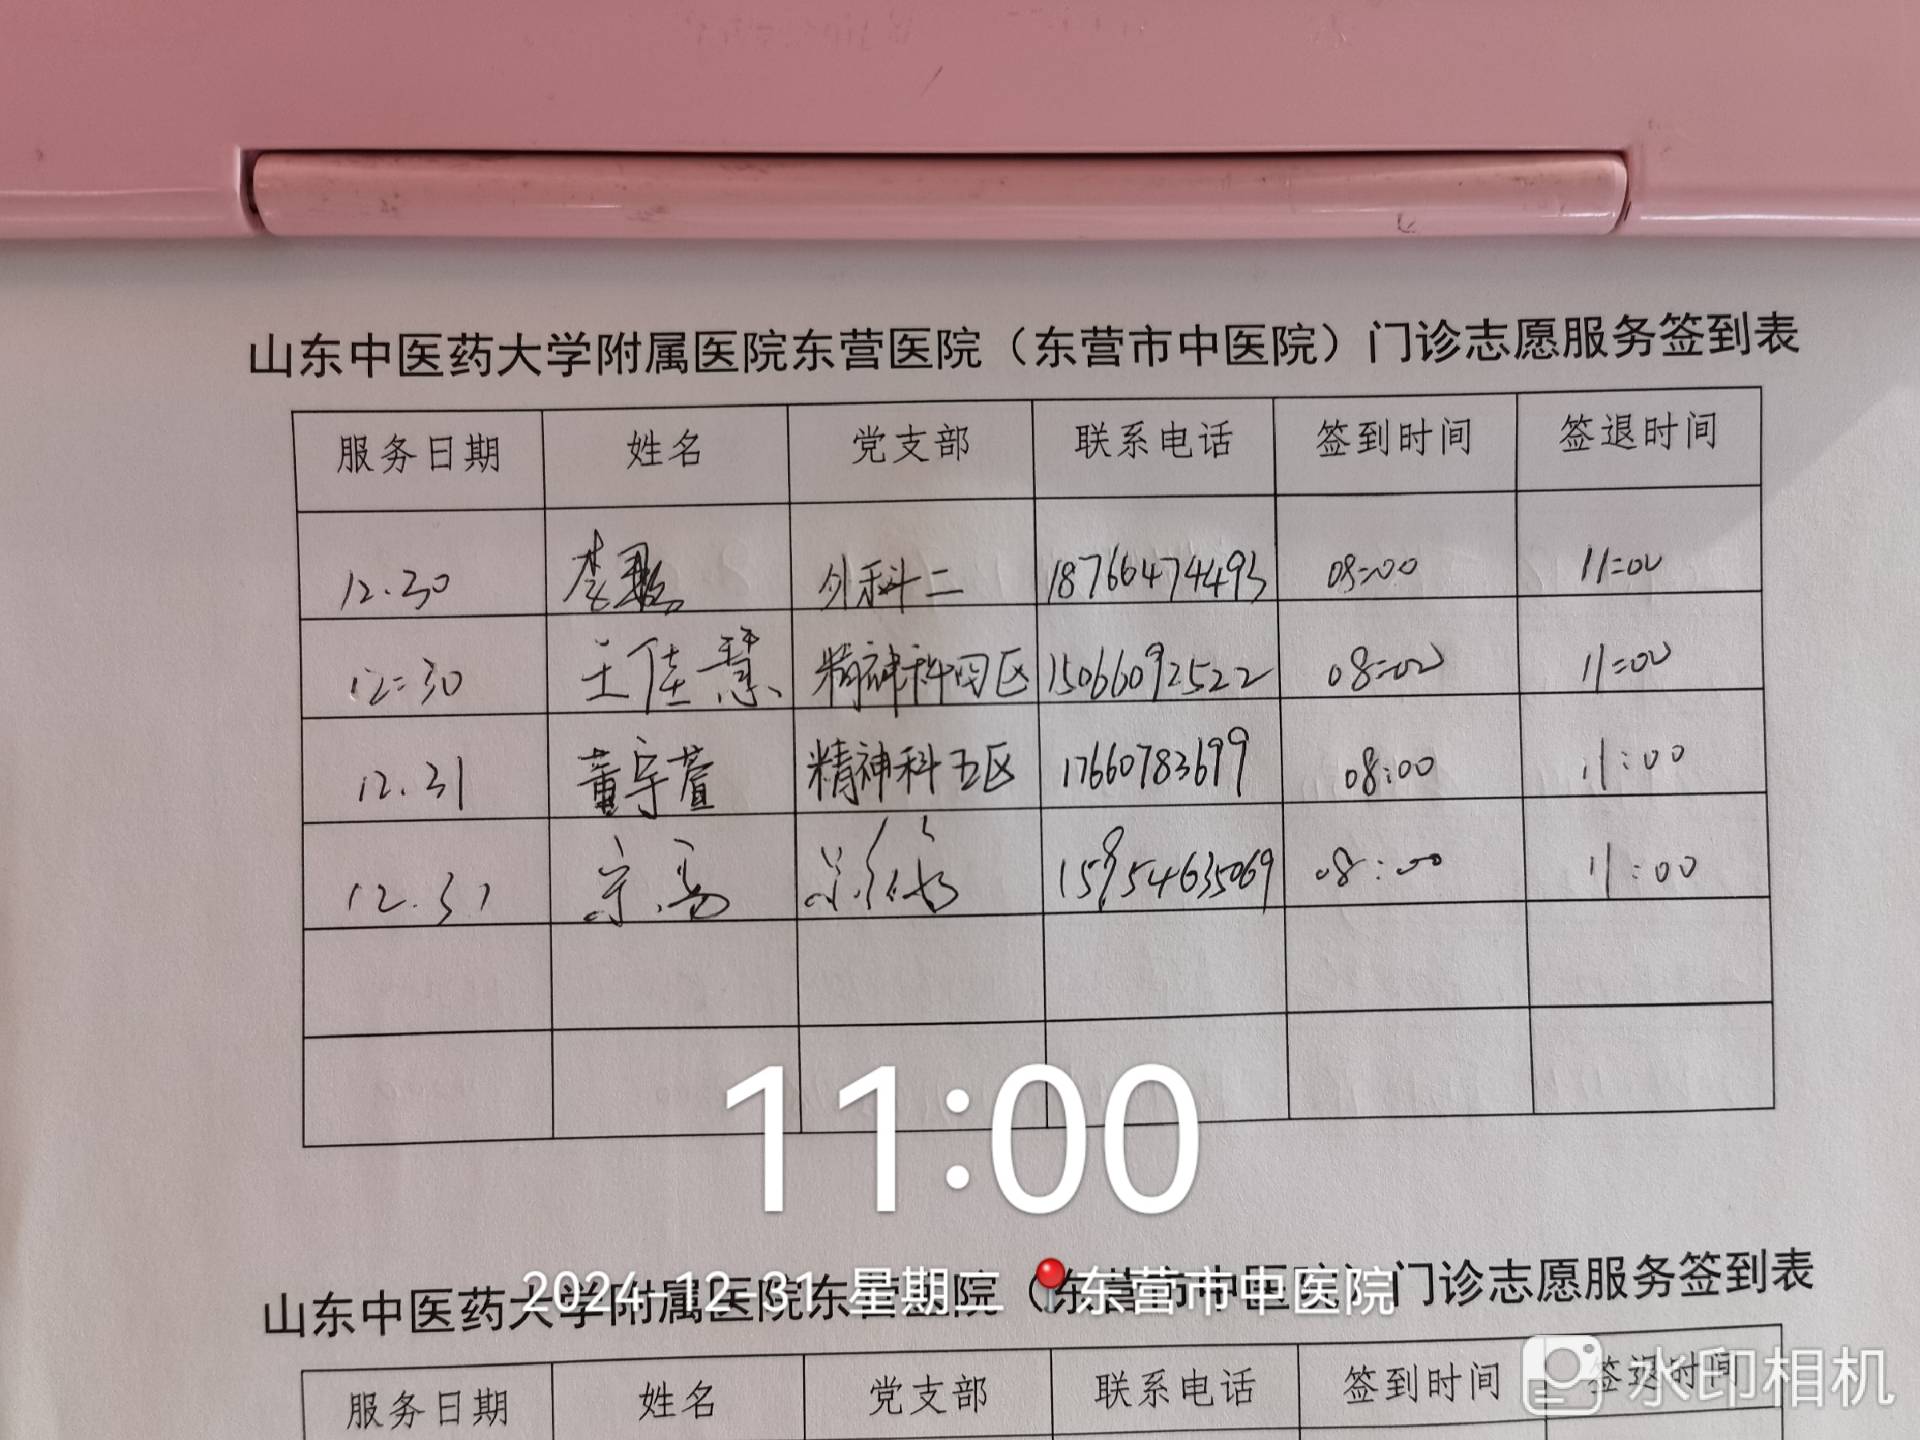 山东中医药大学附属医院东营医院（东营市中医院）门诊志愿服务签到表
服务日期 姓名 党支部 联系电话 签到时间 签退时间
12.30 李 外科二 18766474493 08:00 11:00
12:30 王佳慧 精神科四区 15066092522 08:00 11:00
12.31 董宇萱 精神科五区 17660783699 08:00 11:00
12.31 15954635069 08:00 11:00
11:00
2024-12-31 星期二 东营市中医院
山东中医药大学附属医院东营医院（东营市中医院）门诊志愿服务签到表
服务日期 姓名 党支部 联系电话 签到时间 签退时间
水印相机